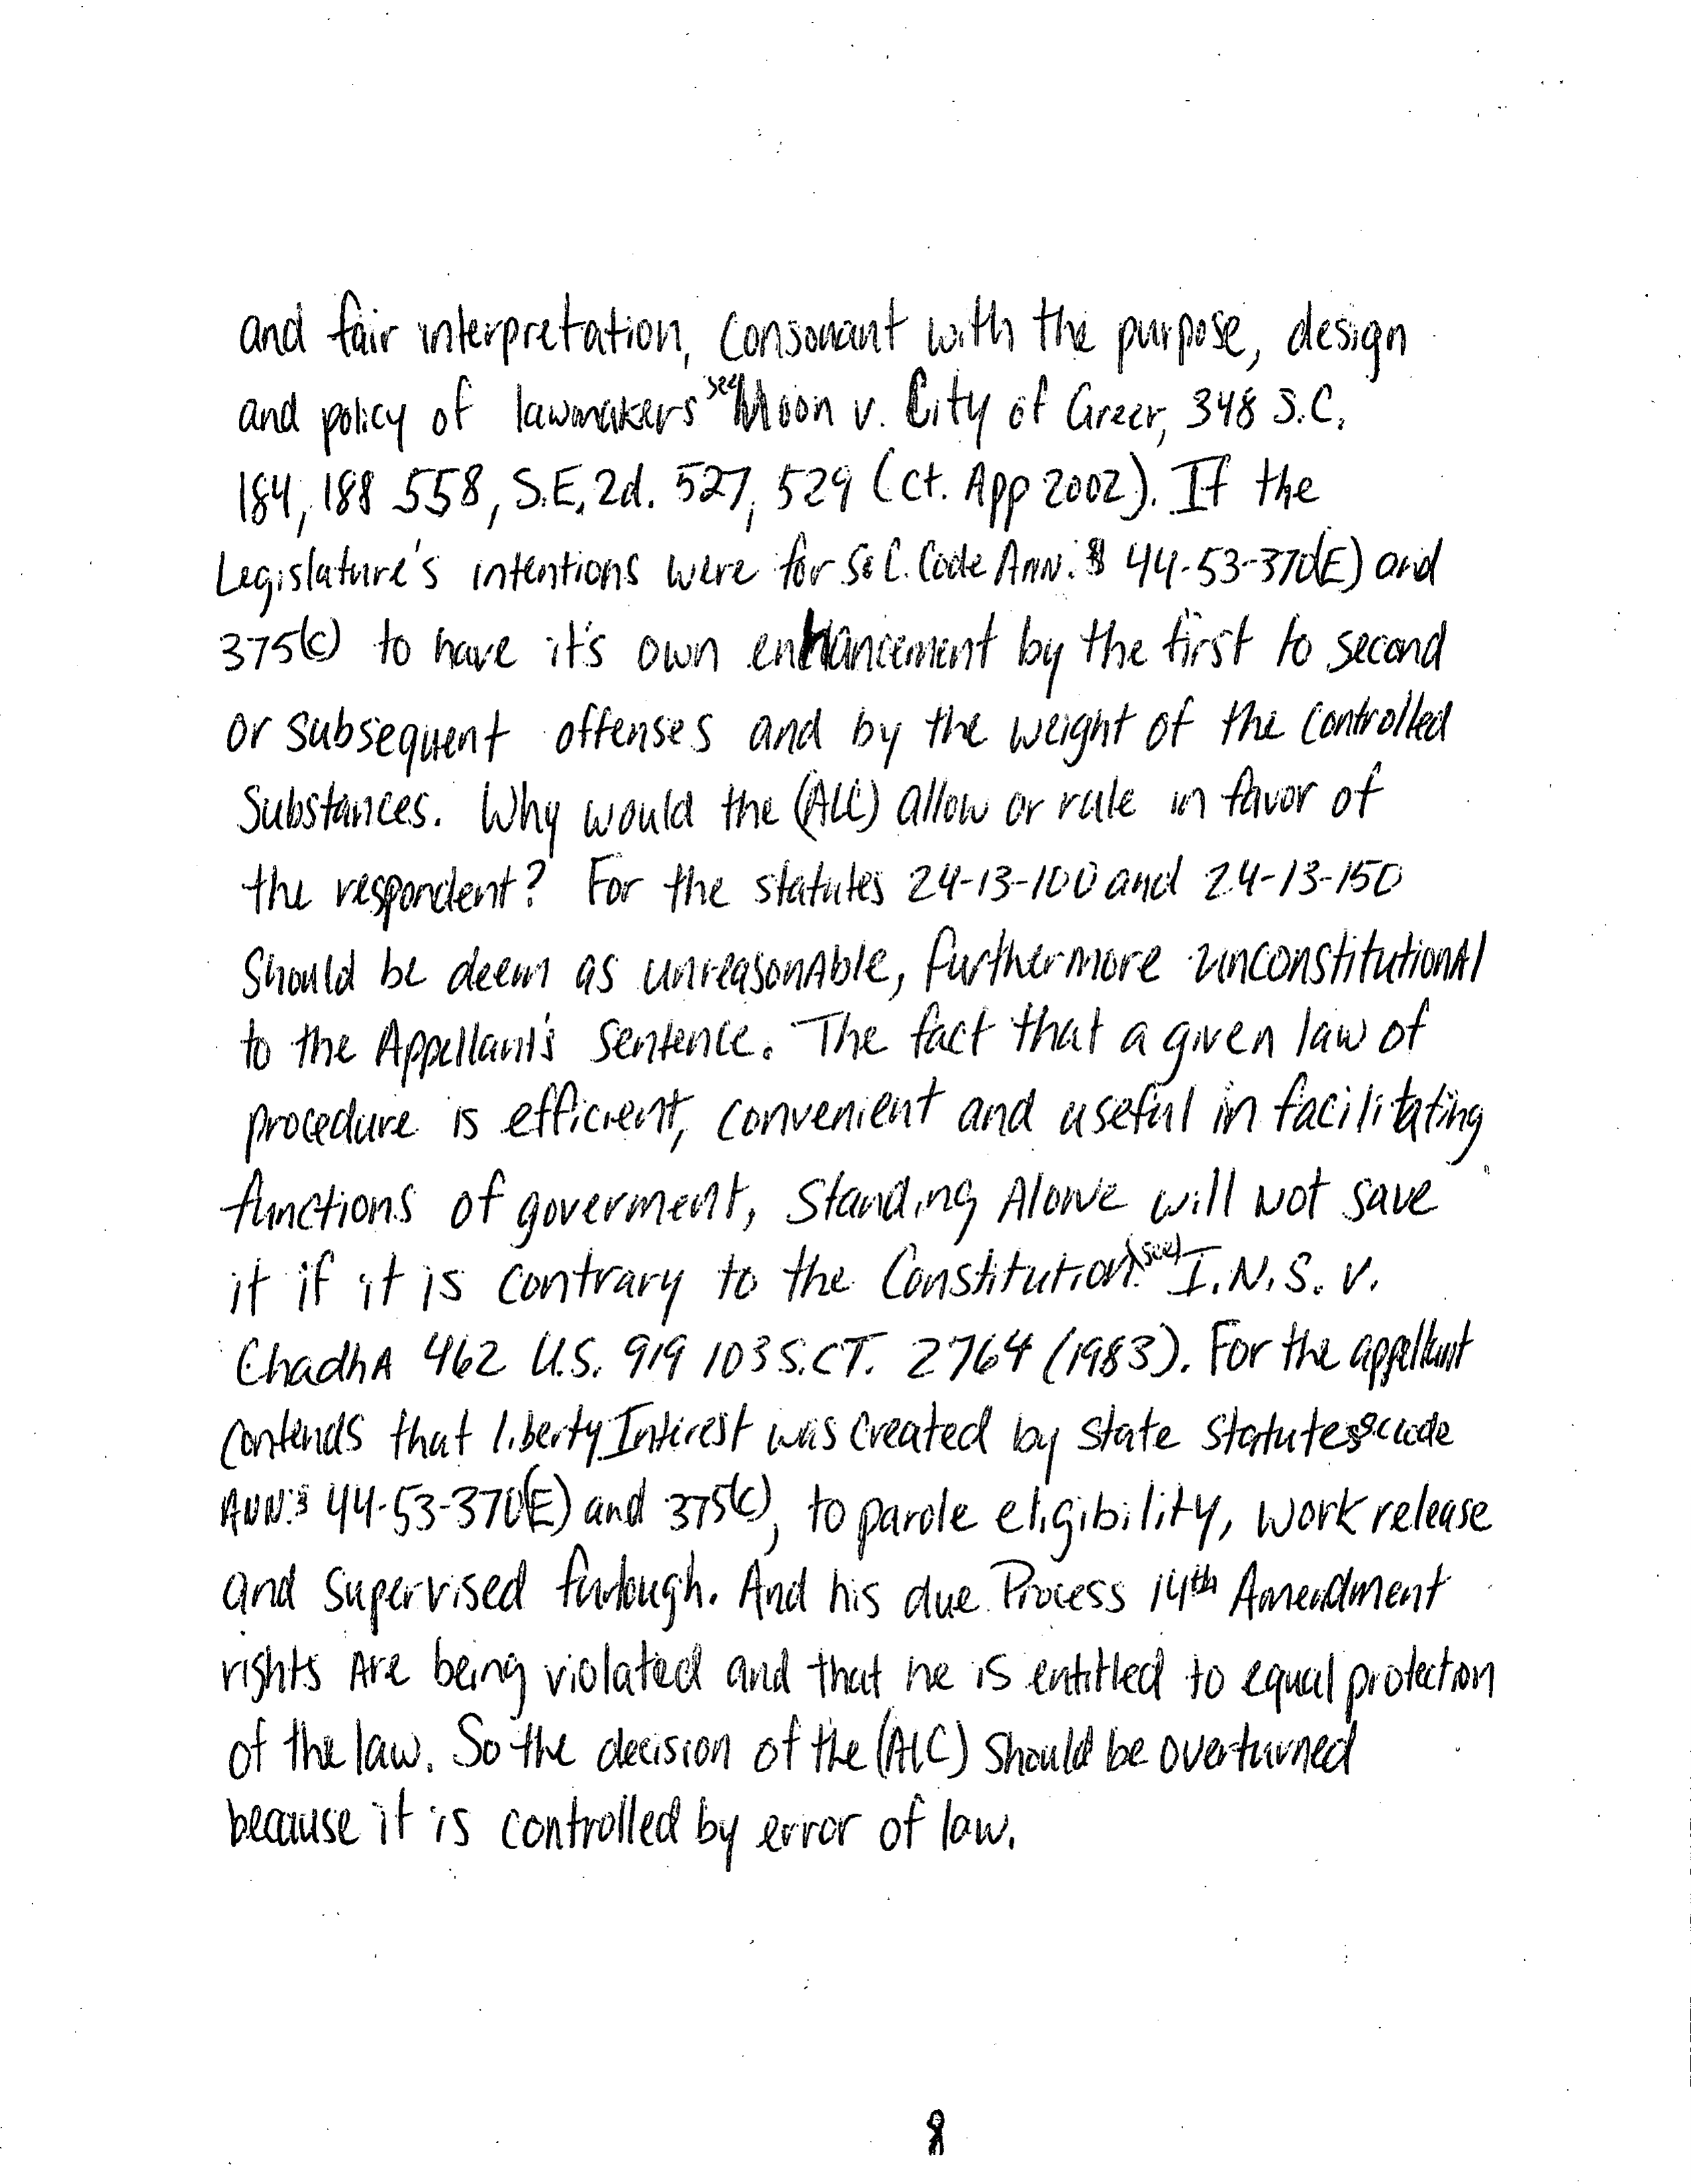 and fair interpretation, consonant with the purpose, design
and policy of lawmakers see Moon v. City of Greer, 348 S.C.
184, 188 558, S.E. 2d. 527, 529 (Ct. App 2002). If the
Legislature's intentions were for S.C. Code Ann. § 44-53-370(E) and
375(c) to have it's own enhancement by the first to second
or subsequent offenses and by the weight of the controlled
Substances. Why would the (ALC) allow or rule in favor of
the respondent? For the statutes 24-13-100 and 24-13-150
Should be deem as unreasonAble, furthermore unconstitutionAl
to the Appellant's sentence. The fact that a given law of
procedure is efficient, convenient and useful in facilitating
functions of goverment, Standing Alone will not save
it if it is contrary to the Constitution. (see) I.N.S. v.
ChadhA 462 U.S. 919 103 S.CT. 2764 (1983). For the appellant
contends that liberty Interest was created by state statutes SC code
ANN. § 44-53-370(E) and 375(c), to parole eligibility, work release
and supervised furlough. And his due Process 14th Amendment
rights Are being violated and that he is entitled to equal protection
of the law. So the decision of the (ALC) should be overturned
because it is controlled by error of law.
8